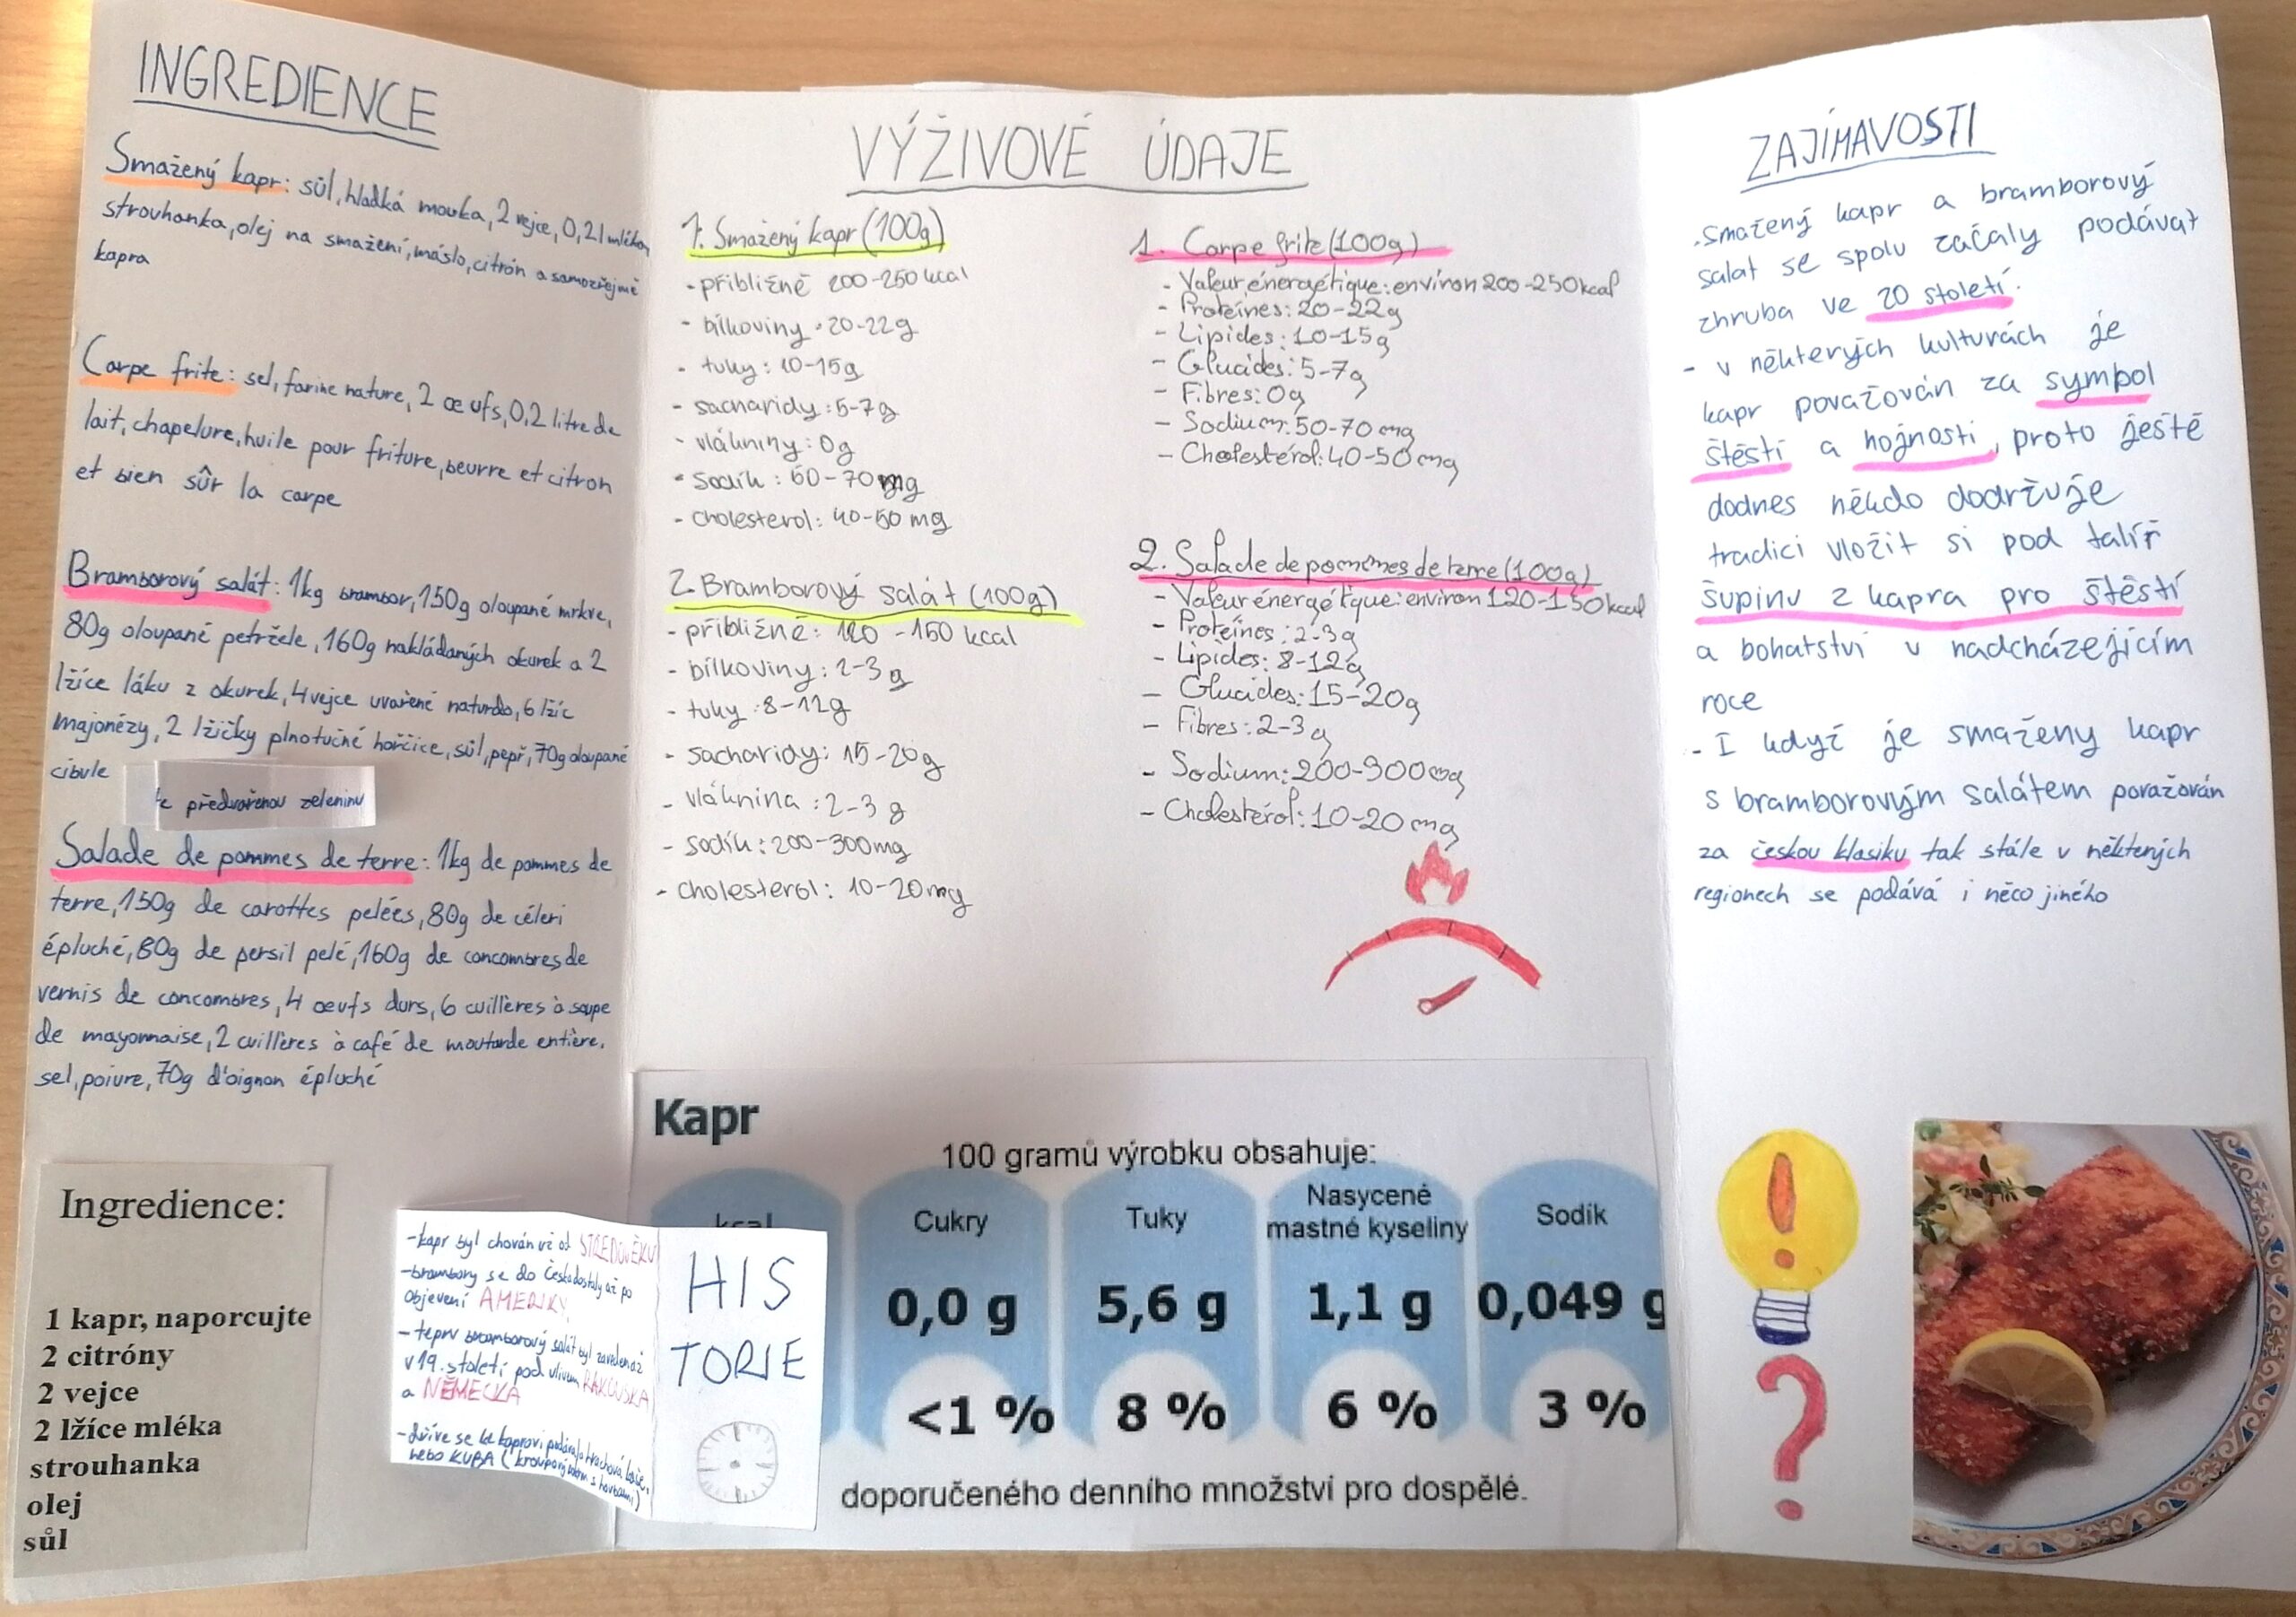 INGREDIENCE
Smažený kapr: sůl, hladká mouka, 2 vejce, 0,2l mléka,
strouhanka, olej na smažení, máslo, citrón a samozřejmě
kapra
Carpe frite: sel, farine nature, 2 œufs, 0,2 litre de
lait, chapelure, huile pour friture, beurre et citron
et bien sûr la carpe
Bramborový salát: 1kg brambor, 150g oloupané mrkve,
80g oloupané petržele, 160g nakládaných okurek a 2
lžíce láku z okurek, 4 vejce uvařené natvrdo, 6 lžic
majonézy, 2 lžičky plnotučné hořčice, sůl, pepř, 70g oloupané
cibule
předvařenou zeleninu
Salade de pommes de terre: 1kg de pommes de
terre, 150g de carottes pelées, 80g de céleri
épluché, 80g de persil pelé, 160g de concombres de
vernis de concombres, 4 oeufs durs, 6 cuillères à soupe
de mayonnaise, 2 cuillères à café de moutarde entière,
sel, poivre, 70g d'oignon épluché
Ingredience:
1 kapr, naporcujte
2 citróny
2 vejce
2 lžíce mléka
strouhanka
olej
sůl
VÝŽIVOVÉ ÚDAJE
1. Smažený kapr (100g)
- přibližně 200-250 kcal
- bílkoviny: 20-22g
- tuky: 10-15g
- sacharidy: 5-7g
- vlákniny: 0g
- sodík: 60-70mg
- cholesterol: 40-50 mg
2. Bramborový salát (100g)
- přibližně: 120-150 kcal
- bílkoviny: 2-3g
- tuky: 8-12g
- sacharidy: 15-20g
- vláknina: 2-3 g
- sodík: 200-300mg
- cholesterol: 10-20mg
1. Carpe frite (100g)
- Valeur énergétique: environ 200-250kcal
- Proteínes: 20-22g
- Lipides: 10-15g
- Glucides: 5-7g
- Fibres: 0g
- Sodium: 50-70 mg
- Cholestérol: 40-50mg
2. Salade de pommes de terre (100g)
- Valeur énergétique: environ 120-150kcal
- Proteínes: 2-3g
- Lipides: 8-12g
- Glucides: 15-20g
- Fibres: 2-3g
- Sodium: 200-300mg
- Cholestérol: 10-20mg
- kapr byl chován už od STŘEDOVĚKU
- brambory se do Česka dostaly až po
objevení AMERIKY
- teprv bramborový salát byl zaveden až
v 19. století pod vlivem RAKOUSKA
a NĚMECKA
- dříve se ke kaprovi podávala hrachová kaše
nebo KUBA (kroupový s houbami)
HIS
TORIE
Kapr
100 gramů výrobku obsahuje:
kcal
Cukry
0,0 g
<1 %
Tuky
5,6 g
8 %
Nasycené
mastné kyseliny
1,1 g
6 %
Sodík
0,049 g
3 %
doporučeného denního množství pro dospělé.
ZAJÍMAVOSTI
- Smažený kapr a bramborový
salat se spolu začaly podávat
zhruba ve 20 století.
- v některých kulturách je
kapr považován za symbol
štěstí a hojnosti, proto ještě
dodnes někdo dodržuje
tradici vložit si pod talíř
šupinu z kapra pro štěstí
a bohatství v nadcházejícím
roce
- I když je smažený kapr
s bramborovým salátem považován
za českou klasiku tak stále v některých
regionech se podává i něco jiného
!
?